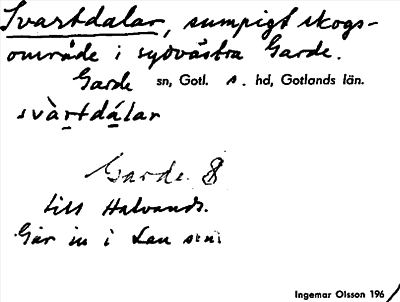 Svartdalar, sumpigt skogs-
område i sydvästra Garde.
Garde sn, Gotl. s. hd, Gotlands län.
svàrtdálar
Garde 8
till Halvands.
Går in i Lau sn.
Ingemar Olsson 196/